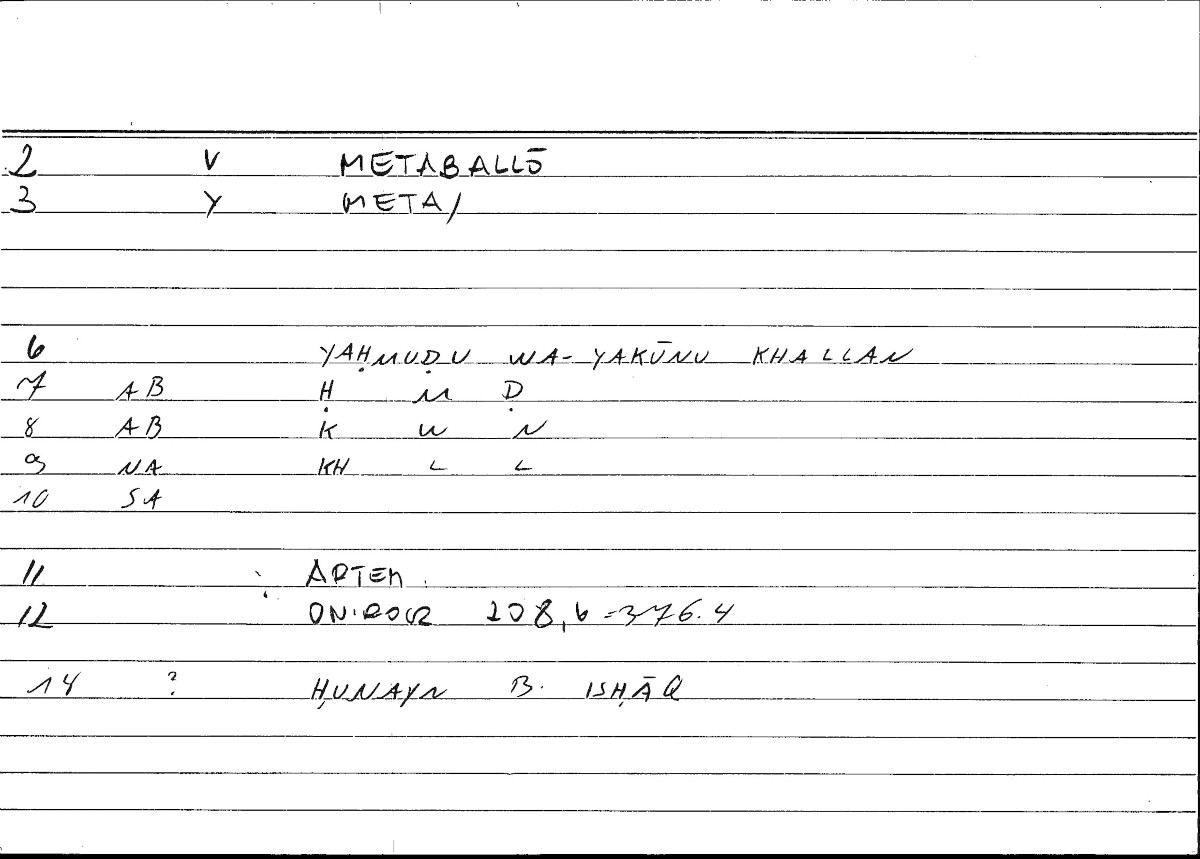 2 V METABALLŌ
3 Y META/
6 YAḤMUḌU WA-YAKŪNU KHALLAN
7 AB Ḥ M Ḍ
8 AB K W N
9 NA KH L L
10 SA
11 ARTEM.
12 ONIROCR 208,6=376.4
14 ? ḤUNAYN B. ISḤĀQ